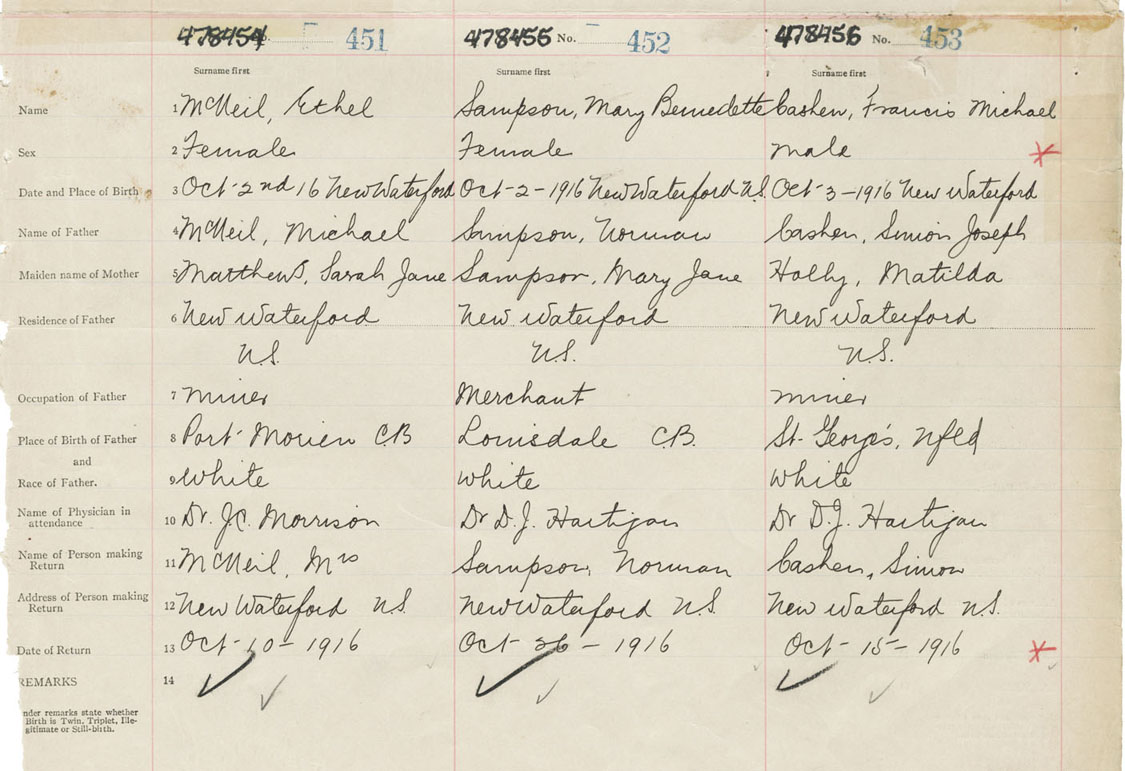 478454 451 478455 No. 452 478456 No. 453
Surname first Surname first Surname first
Name 1 McNeil, Ethel Sampson, Mary Bernedette Cashen, Francis Michael
Sex 2 Female Female Male
Date and Place of Birth 3 Oct-2nd 16 New Waterford Oct-2-1916 New Waterford N.S. Oct-3-1916 New Waterford
Name of Father 4 McNeil, Michael Sampson, Norman Cashen, Simon Joseph
Maiden name of Mother 5 Matthews, Sarah Jane Sampson, Mary Jane Holly, Matilda
Residence of Father 6 New Waterford New Waterford New Waterford
N.S. N.S. N.S.
Occupation of Father 7 Miner Merchant Miner
Place of Birth of Father 8 Port Morien C.B Louisdale C.B. St. George's, Nfld
and
Race of Father. 9 White White White
Name of Physician in
attendance 10 Dr. J.C. Morrison Dr D.J. Hartigan Dr D.J. Hartigan
Name of Person making
Return 11 McNeil, Mrs Sampson, Norman Cashen, Simon
Address of Person making
Return 12 New Waterford N.S. New Waterford N.S. New Waterford N.S.
Date of Return 13 Oct-10-1916 Oct-26-1916 Oct-15-1916
REMARKS 14
nder remarks state whether
Birth is Twin, Triplet, Ille-
gitimate or Still-birth.